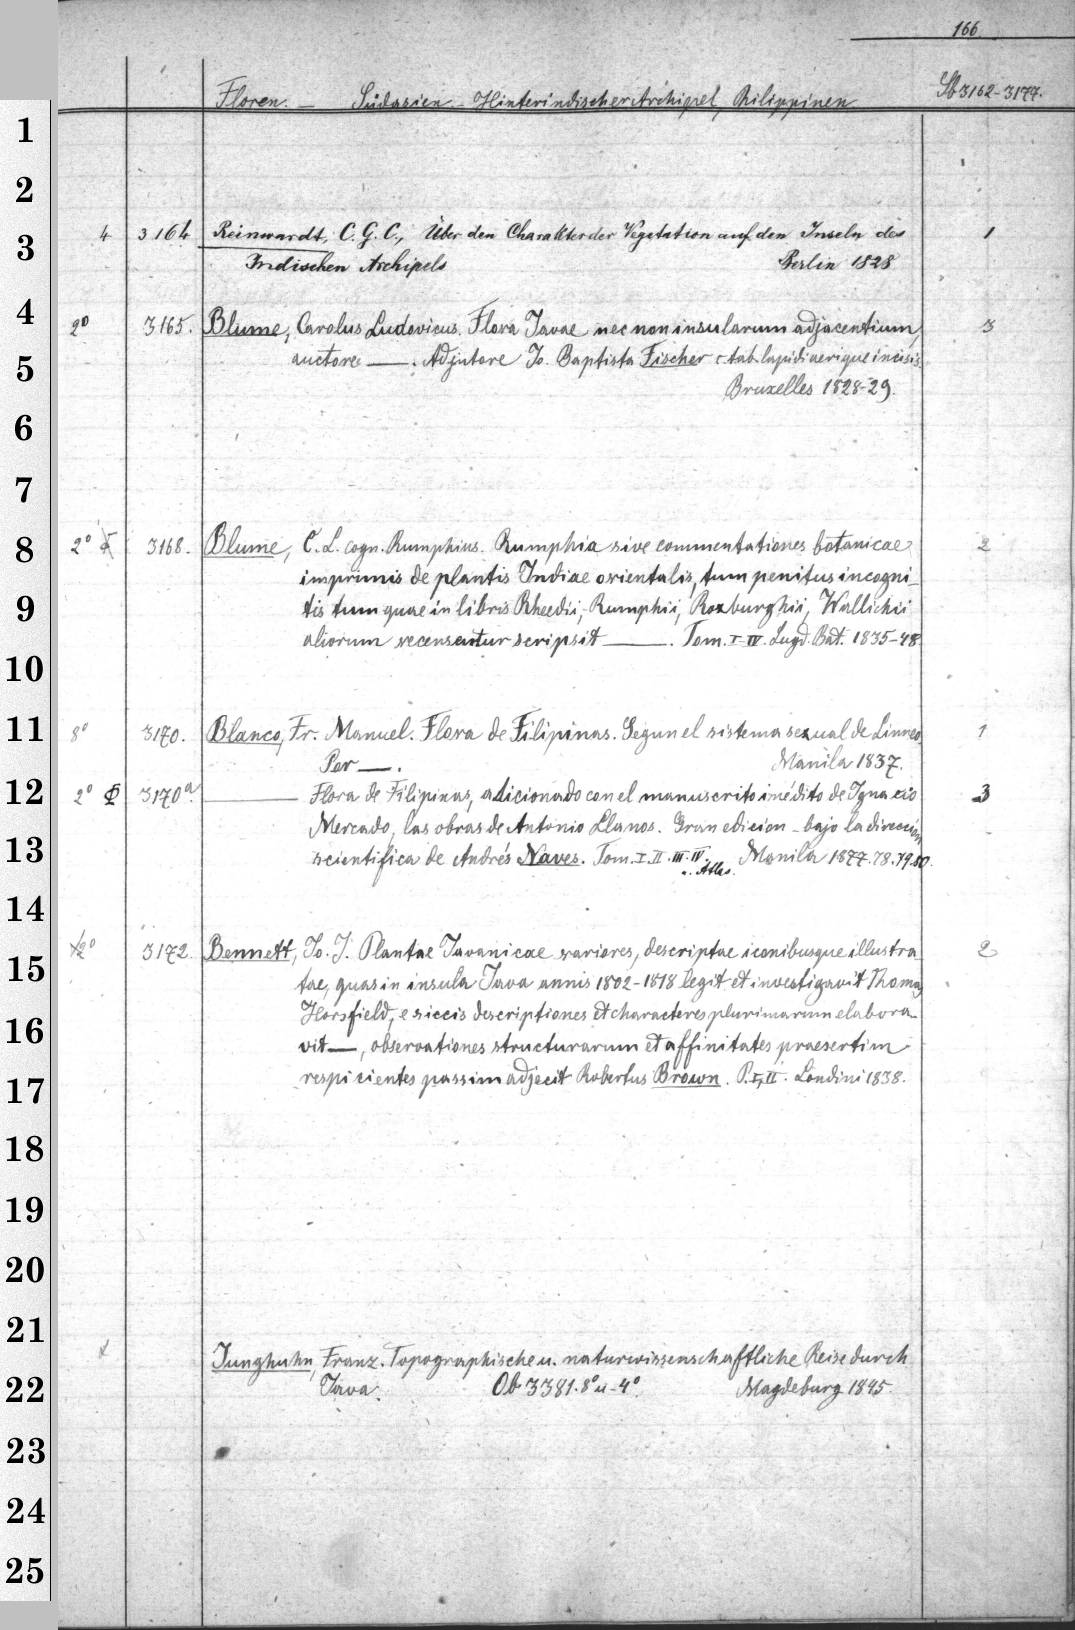 166
Floren. — Südasien - Hinterindischer Archipel, Philippinen Sb 3162-3177.
1
2
3
4 3164 Reinwardt, C. G. C., Über den Charakter der Vegetation auf den Inseln des 1
Indischen Archipels Berlin 1828
4
2° 3165. Blume, Carolus Ludovicus. Flora Javae nec non insularum adjacentium, 3
5
auctore —. Adjutore Jo. Baptista Fischer c tab. lapidi aerique incisis.
Bruxelles 1828-29.
6
7
8
2° 3168. Blume, C. L. cogn. Rumphius. Rumphia sive commentationes botanicae 2
imprimis de plantis Indiae orientalis, tum penitus incogni-
9
tis tum quae in libris Rheedii, Rumphii, Roxburghii, Wallichii
aliorum recensentur scripsit —. Tom. I-IV. Lugd. Bat. 1835-48
10
11
8° 3170. Blanco, Fr. Manuel. Flora de Filipinas. Segun el sistema sexual de Linneo 1
Por —. Manila 1837.
12
2° Φ 3170a. — Flora de Filipinas, adicionado con el manuscrito inédito de Ignacio 3
Mercado, las obras de Antonio Llanos. Gran edicion - bajo la direccion
13
scientifica de Andrés Naves. Tom. I. II. III. IV. Manila 1877.78.79.80.
u. Atlas.
14
15
2° 3172. Bennett, Jo. J. Plantae Javanicae rariores, descriptae iconibusque illustra- 2
tae, quas in insula Java annis 1802-1818 legit et investigavit Thomas
Horsfield, e siccis descriptiones et characteres plurimarum elabora-
16
vit —, observationes structurarum et affinitates praesertim
17
respicientes passim adjecit Robertus Brown. P. I, II. Londini 1838.
18
19
20
21
Junghuhn, Franz. Topographische u. naturwissenschaftliche Reise durch
22
Java. Ob 3381. 8° u. 4°. Magdeburg 1845.
23
24
25